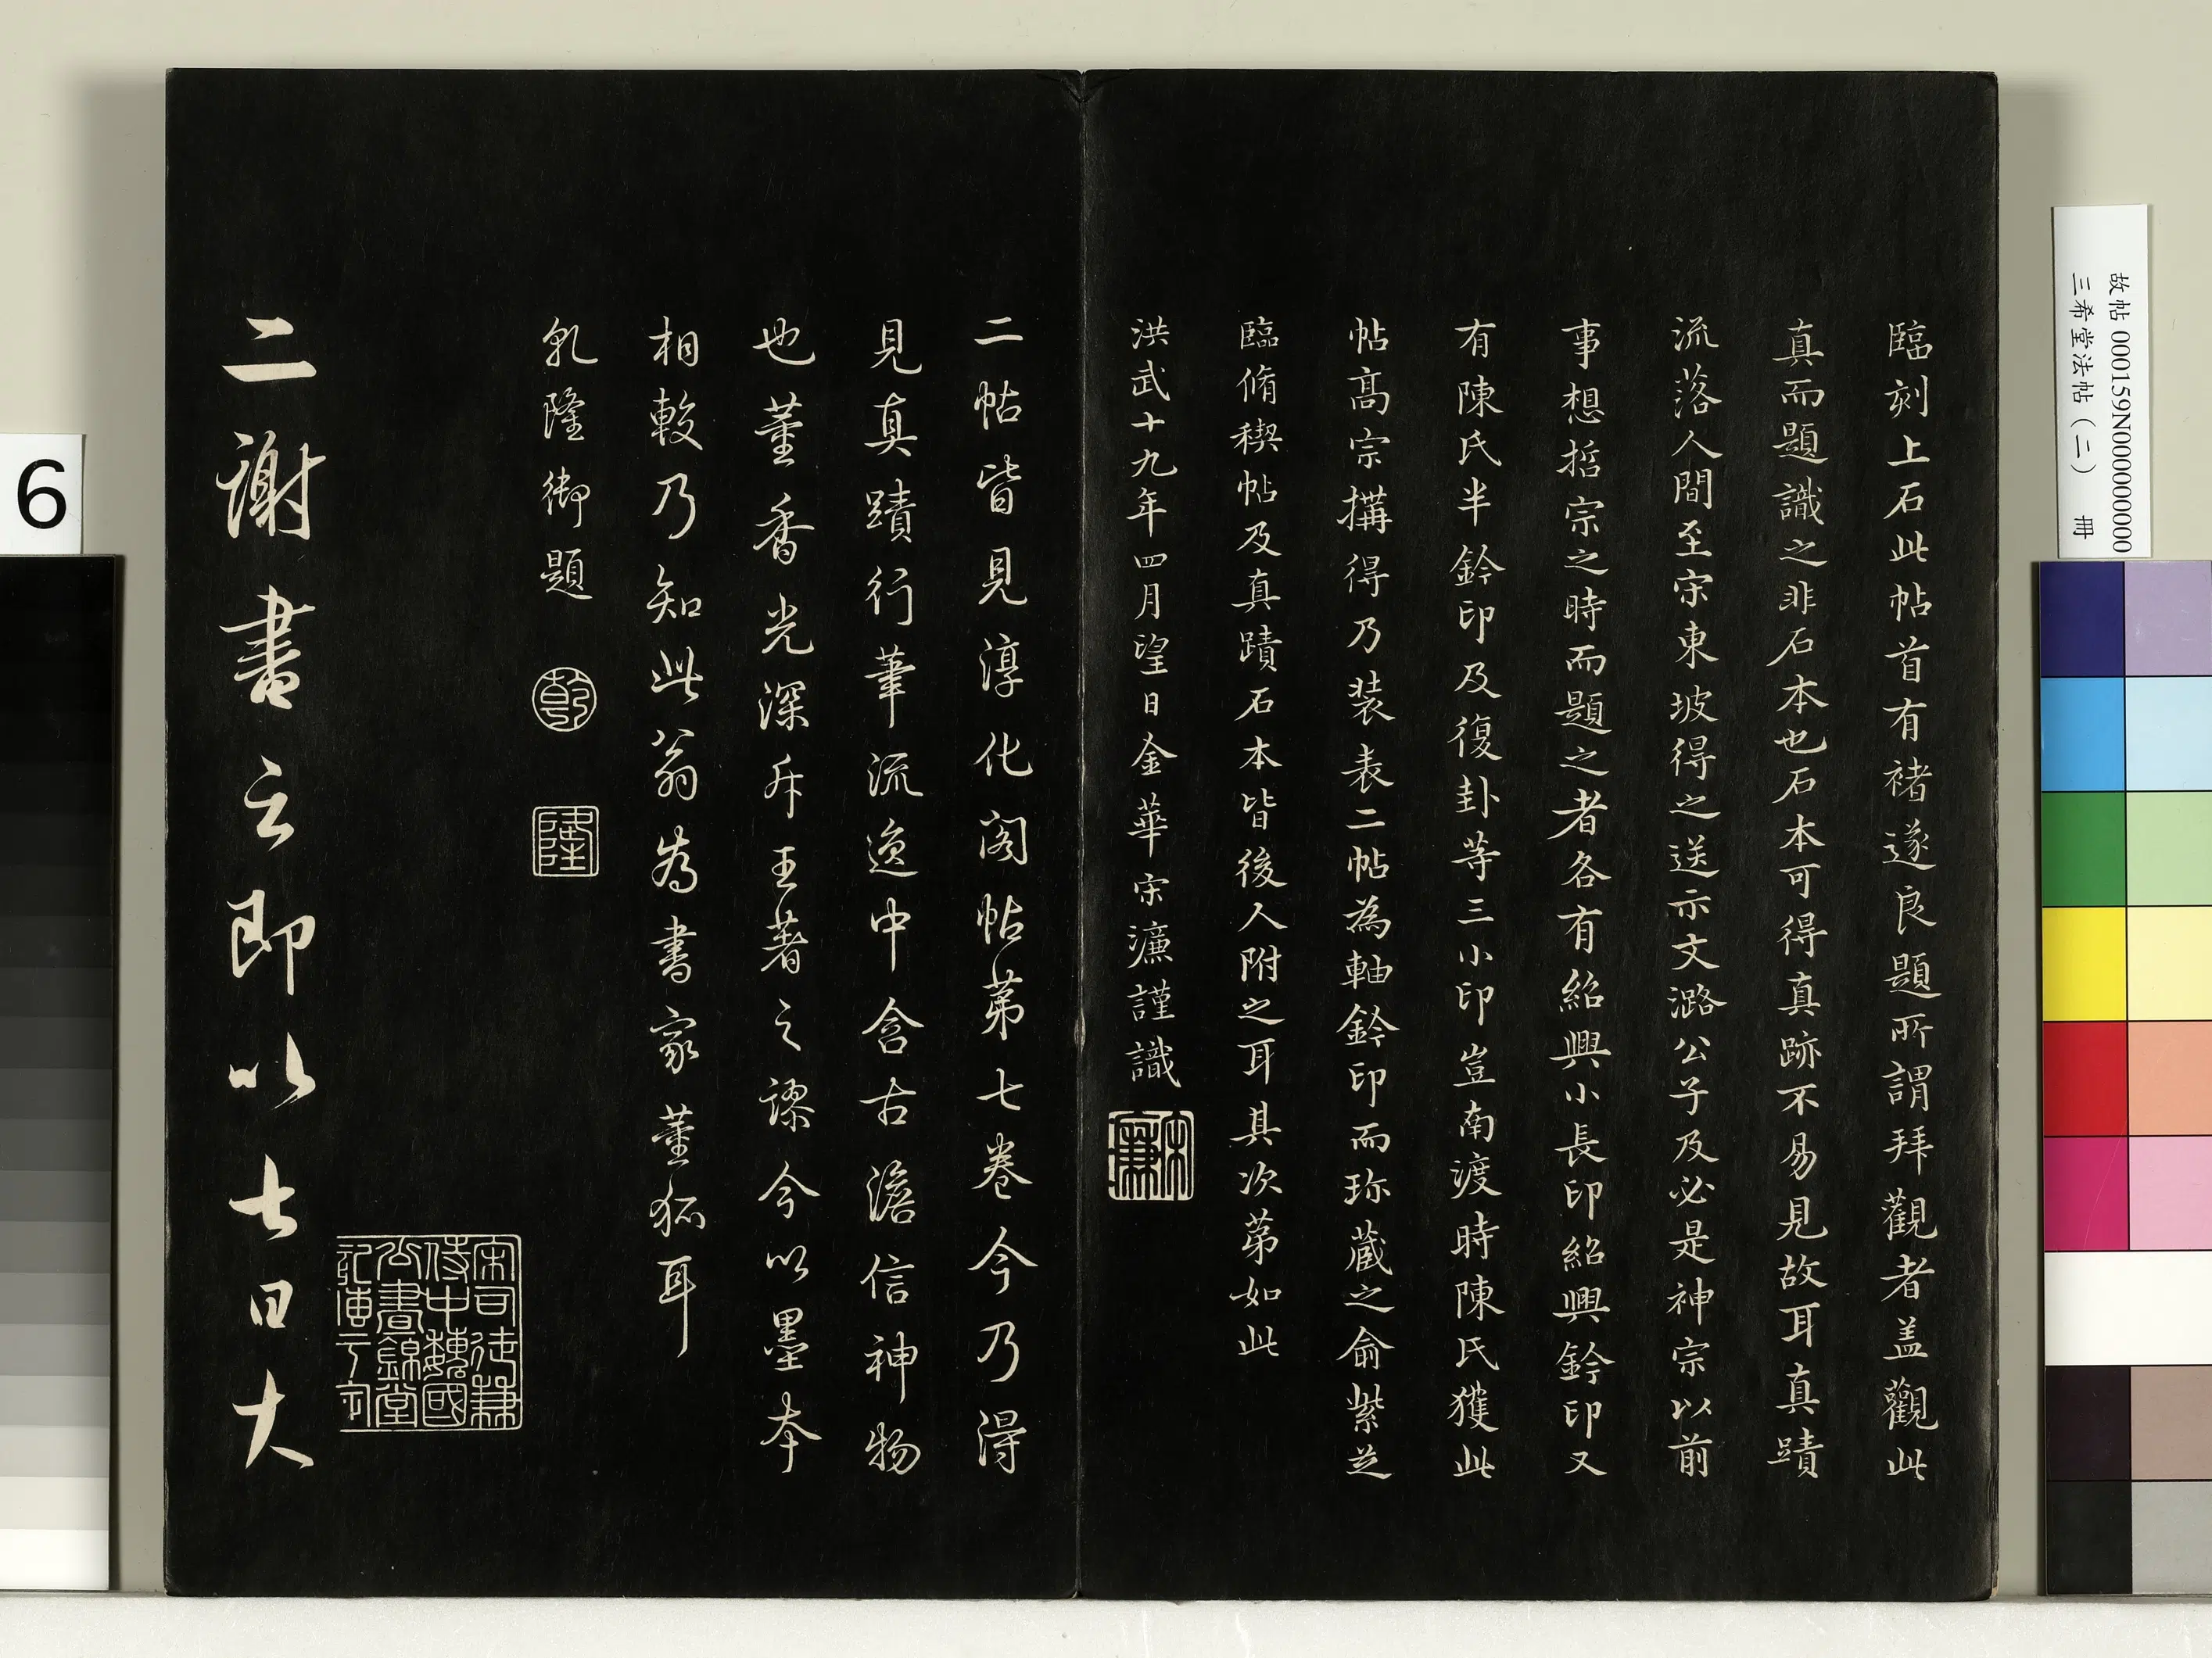 臨刻上石此帖首有褚遂良題所謂拜觀者盖觀此
真而題識之非石本也石本可得真跡不易見故耳真蹟
流落人間至宋東坡得之送示文潞公子及必是神宗以前
事想哲宗之時而題之者各有紹興小長印紹興鈐印又
有陳氏半鈐印及復卦等三小印豈南渡時陳氏獲此
帖高宗搆得乃装表二帖為軸鈐印而珎蔵之俞紫芝
臨脩稧帖及真蹟石本皆後人附之耳其次苐如此
洪武十九年四月望日金華宋濂謹識
宋濂
二帖皆見淳化阁帖苐七卷今乃得
見真蹟行筆流逸中含古澹信神物
也董香光深斥王著之謬今以墨本
相較乃知此翁為書家董狐耳
乾隆御題
乾
隆
宋司徒兼
侍中魏國
公書錦堂
記
二謝書云即以七日大
6
故帖 000159N000000000
三希堂法帖（二） 冊